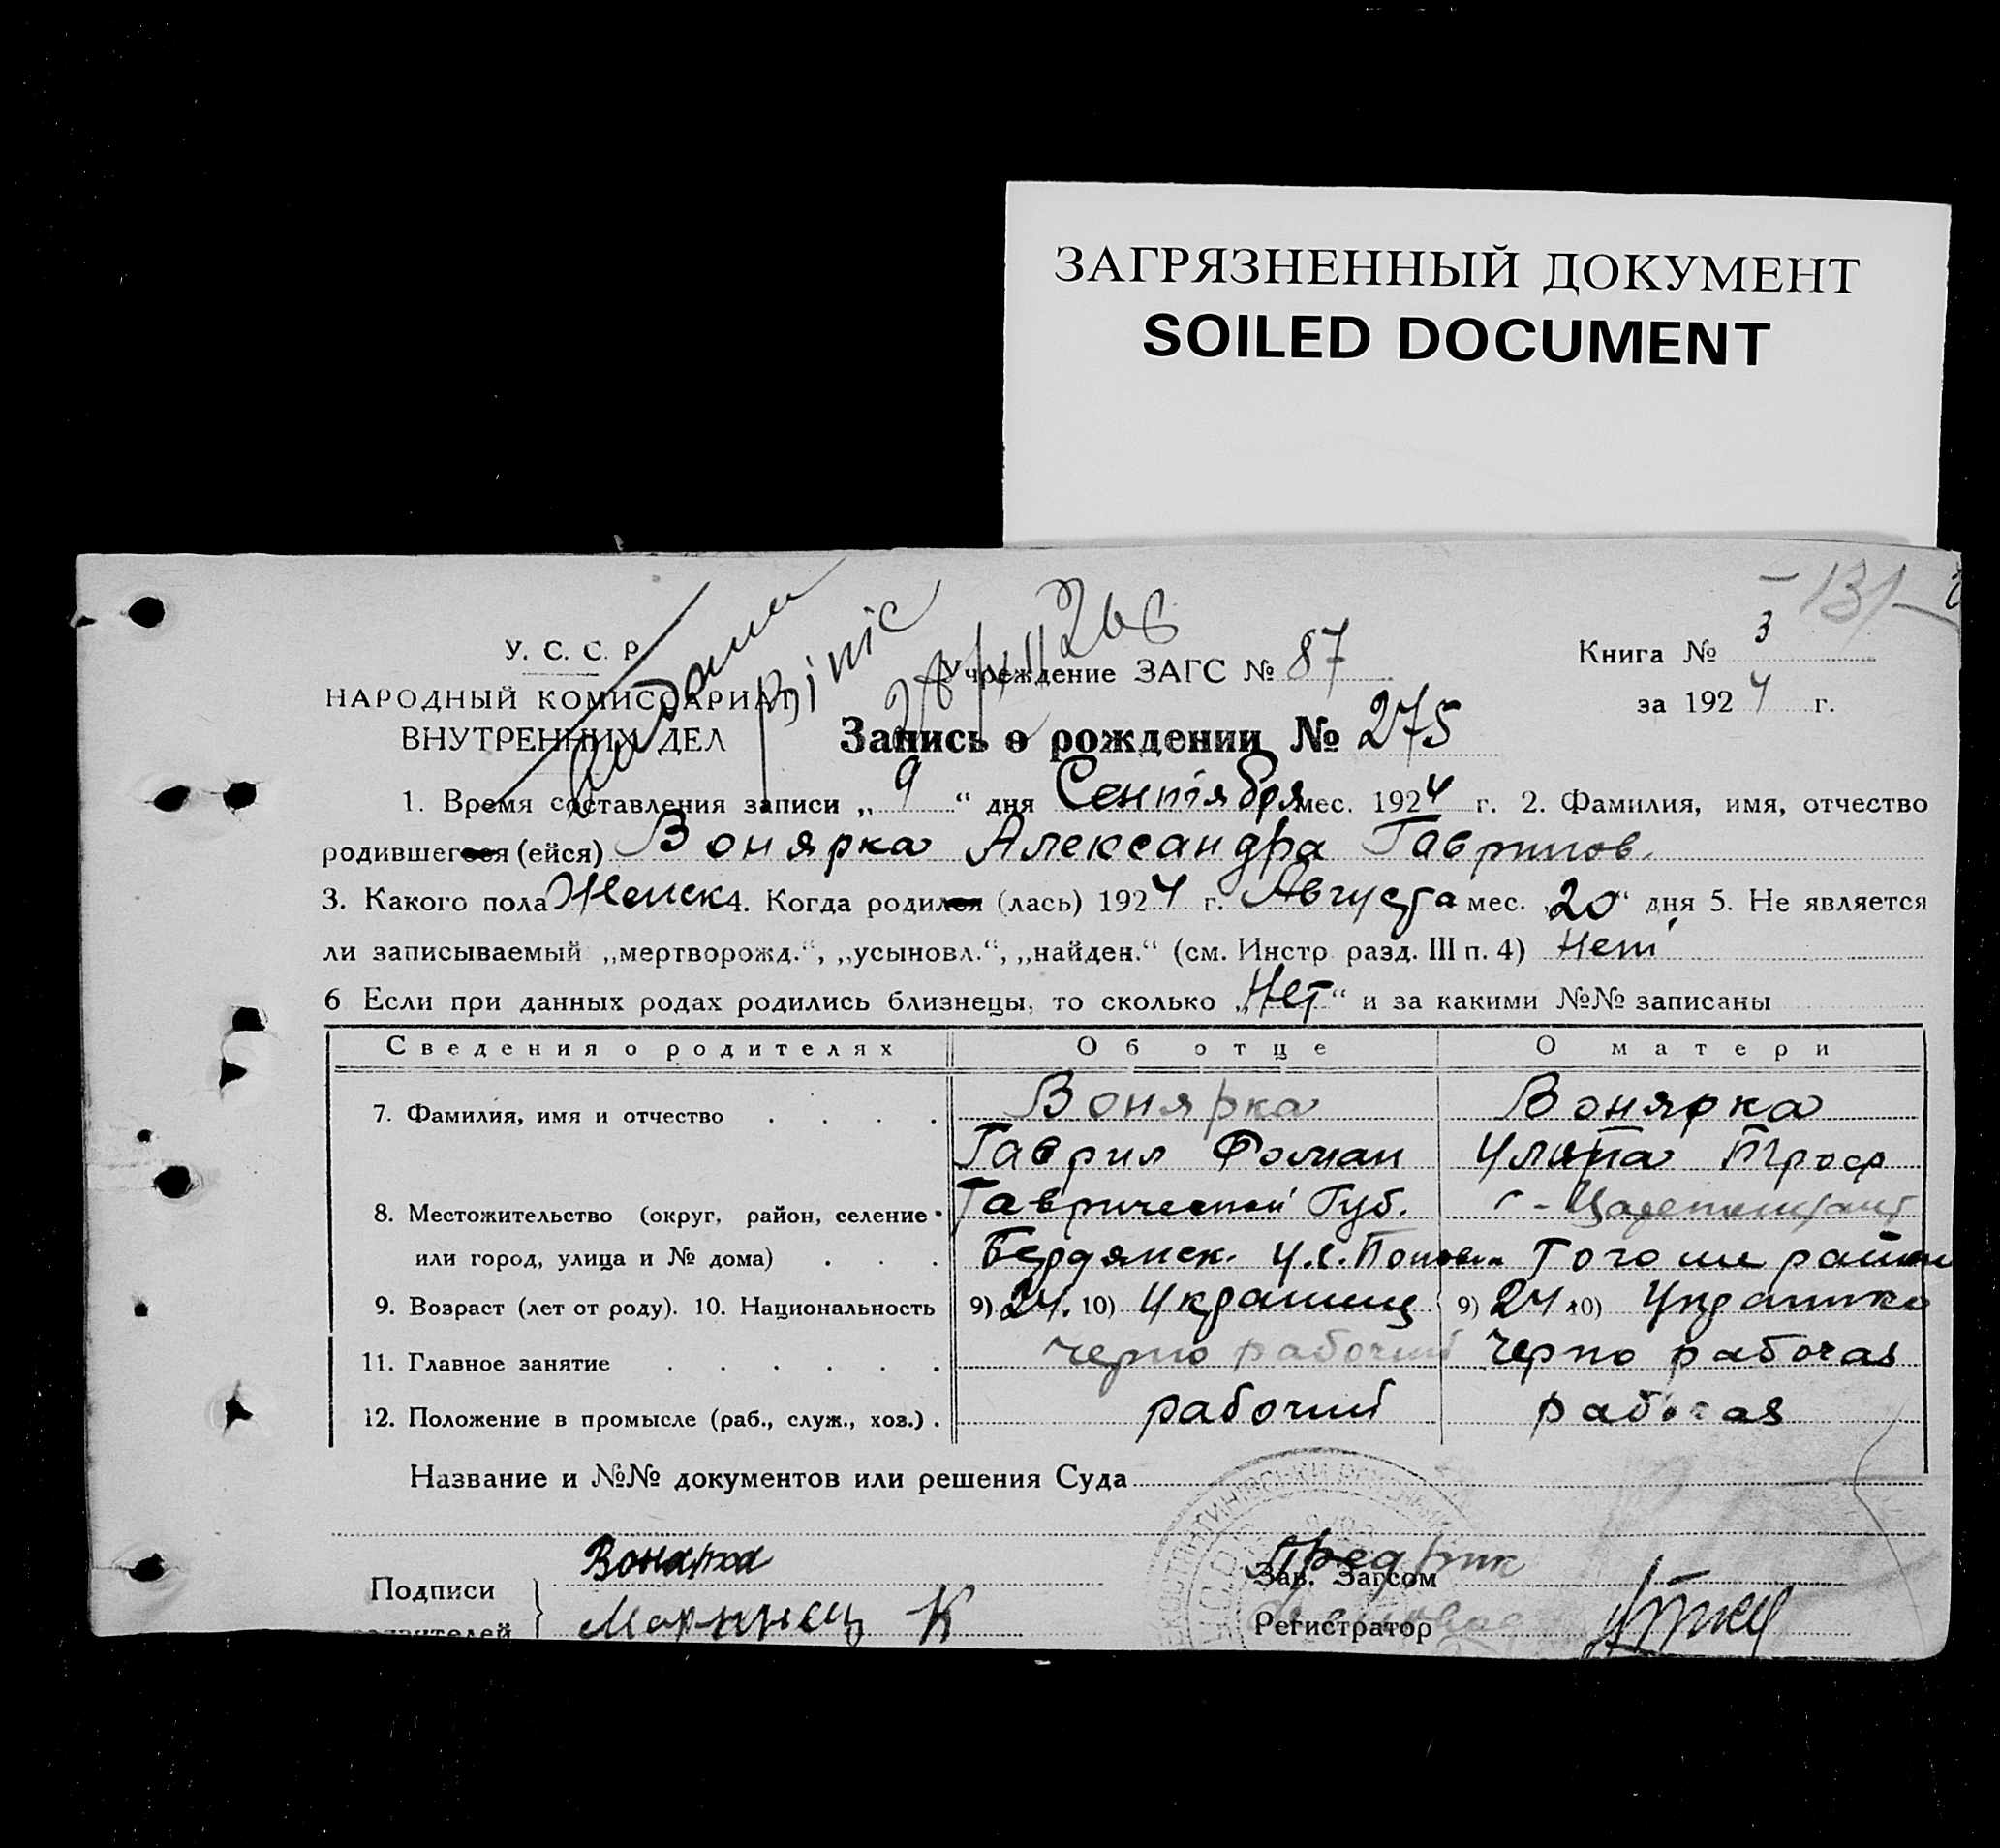 ЗАГРЯЗНЕННЫЙ ДОКУМЕНТ
SOILED DOCUMENT
У. С. С. Р.
НАРОДНЫЙ КОМИССАРИАТ
ВНУТРЕННИХ ДЕЛ
Учреждение ЗАГС № 87
Книга № 3
за 1924 г.
Запись о рождении № 275
1. Время составления записи „ 9 “ дня Сентября мес. 1924 г. 2. Фамилия, имя, отчество
родившегося (ейся) Вонярка Александра Гаврилов.
3. Какого пола Женск 4. Когда родился (лась) 1924 г. Августа мес. „20“ дня 5. Не является
ли записываемый „мертворожд.“, „усыновл.“, „найден.“ (см. Инстр разд. III п. 4) Нет
6 Если при данных родах родились близнецы, то сколько „Нет“ и за какими №№ записаны
Сведения о родителях Об отце О матери
7. Фамилия, имя и отчество . . . . Вонярка Вонярка
Гаврил Фоман Уляна Троф
8. Местожительство (округ, район, селение Таврической Губ.
или город, улица и № дома) . . . Бердянск. У.с. Того же
9. Возраст (лет от роду). 10. Национальность 9) 24. 10) Украинец 9) 24 10) Украинка
11. Главное занятие . . . . . . черно рабочий Черно рабочая
12. Положение в промысле (раб., служ., хоз.) . рабочий рабочая
Название и №№ документов или решения Суда
Вонярка
Подписи
Зав. Загсом
К
Регистратор